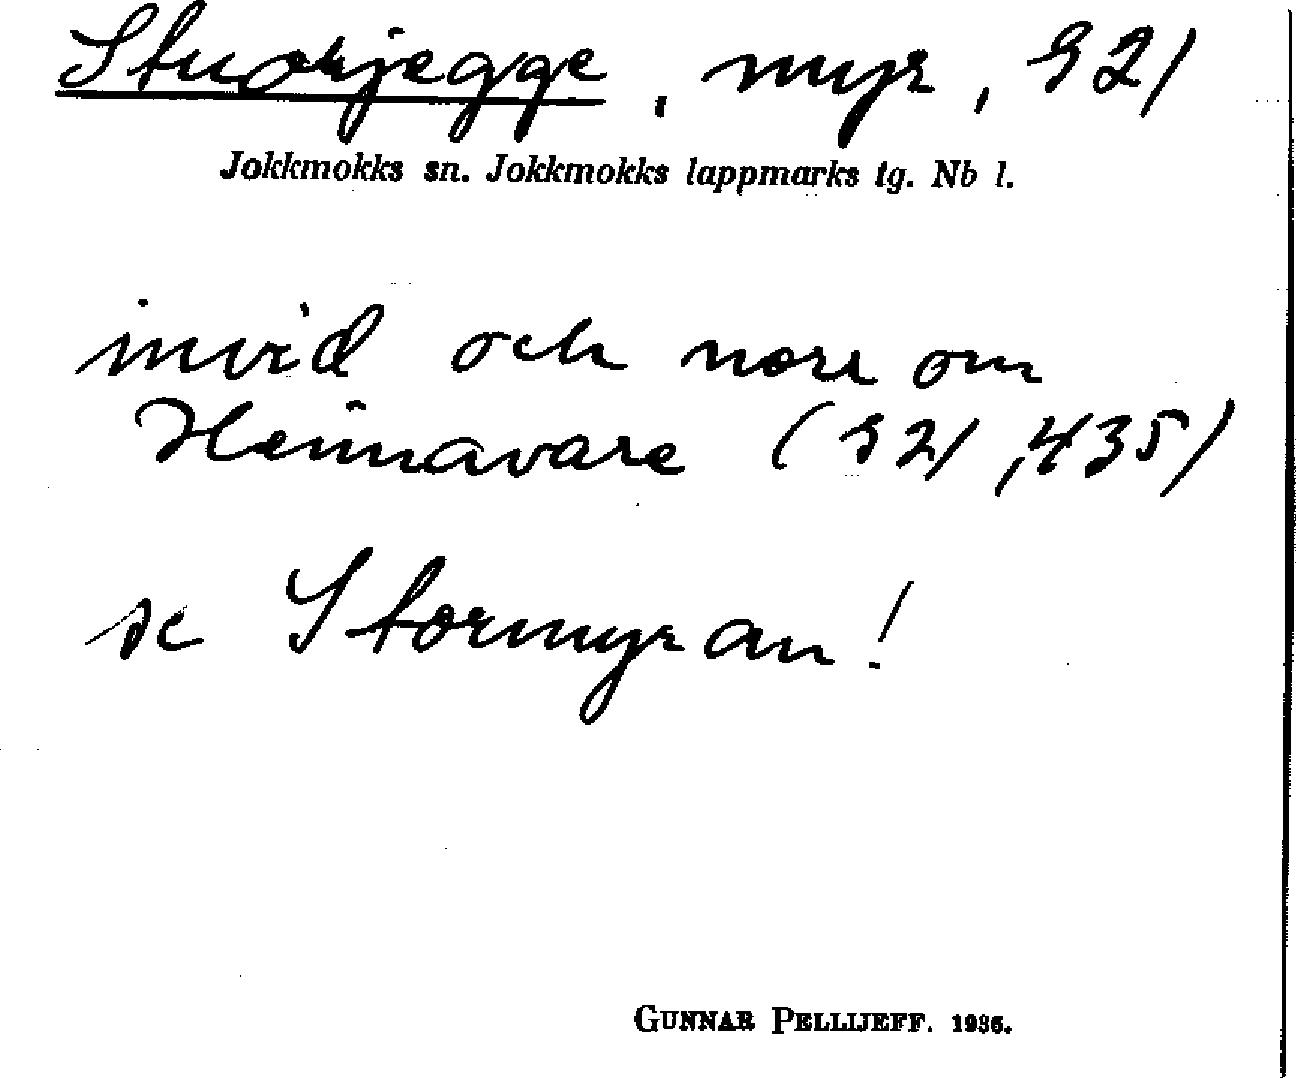 Stuorjegge, myr, 921
Jokkmokks sn. Jokkmokks lappmarks tg. Nb l.
invid och norr om
Heinavare (921,435)
se Stormyran!
GUNNAR PELLIJEFF. 1936.